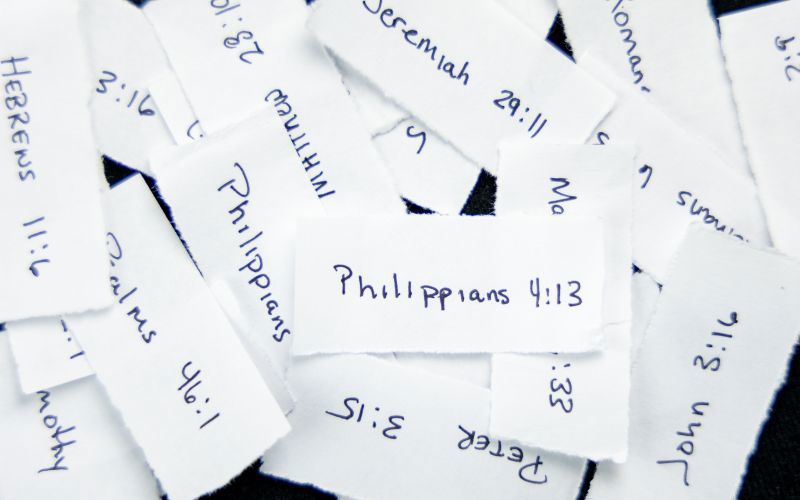 Jeremiah 29:11
Roman
28:
3:16
HEBREWS 11:6
MATTHEW
Philippians
Ma
:33
Philippians 4:13
Psalms 46:1
John 3:16
PETER 3:15
mothy
:1